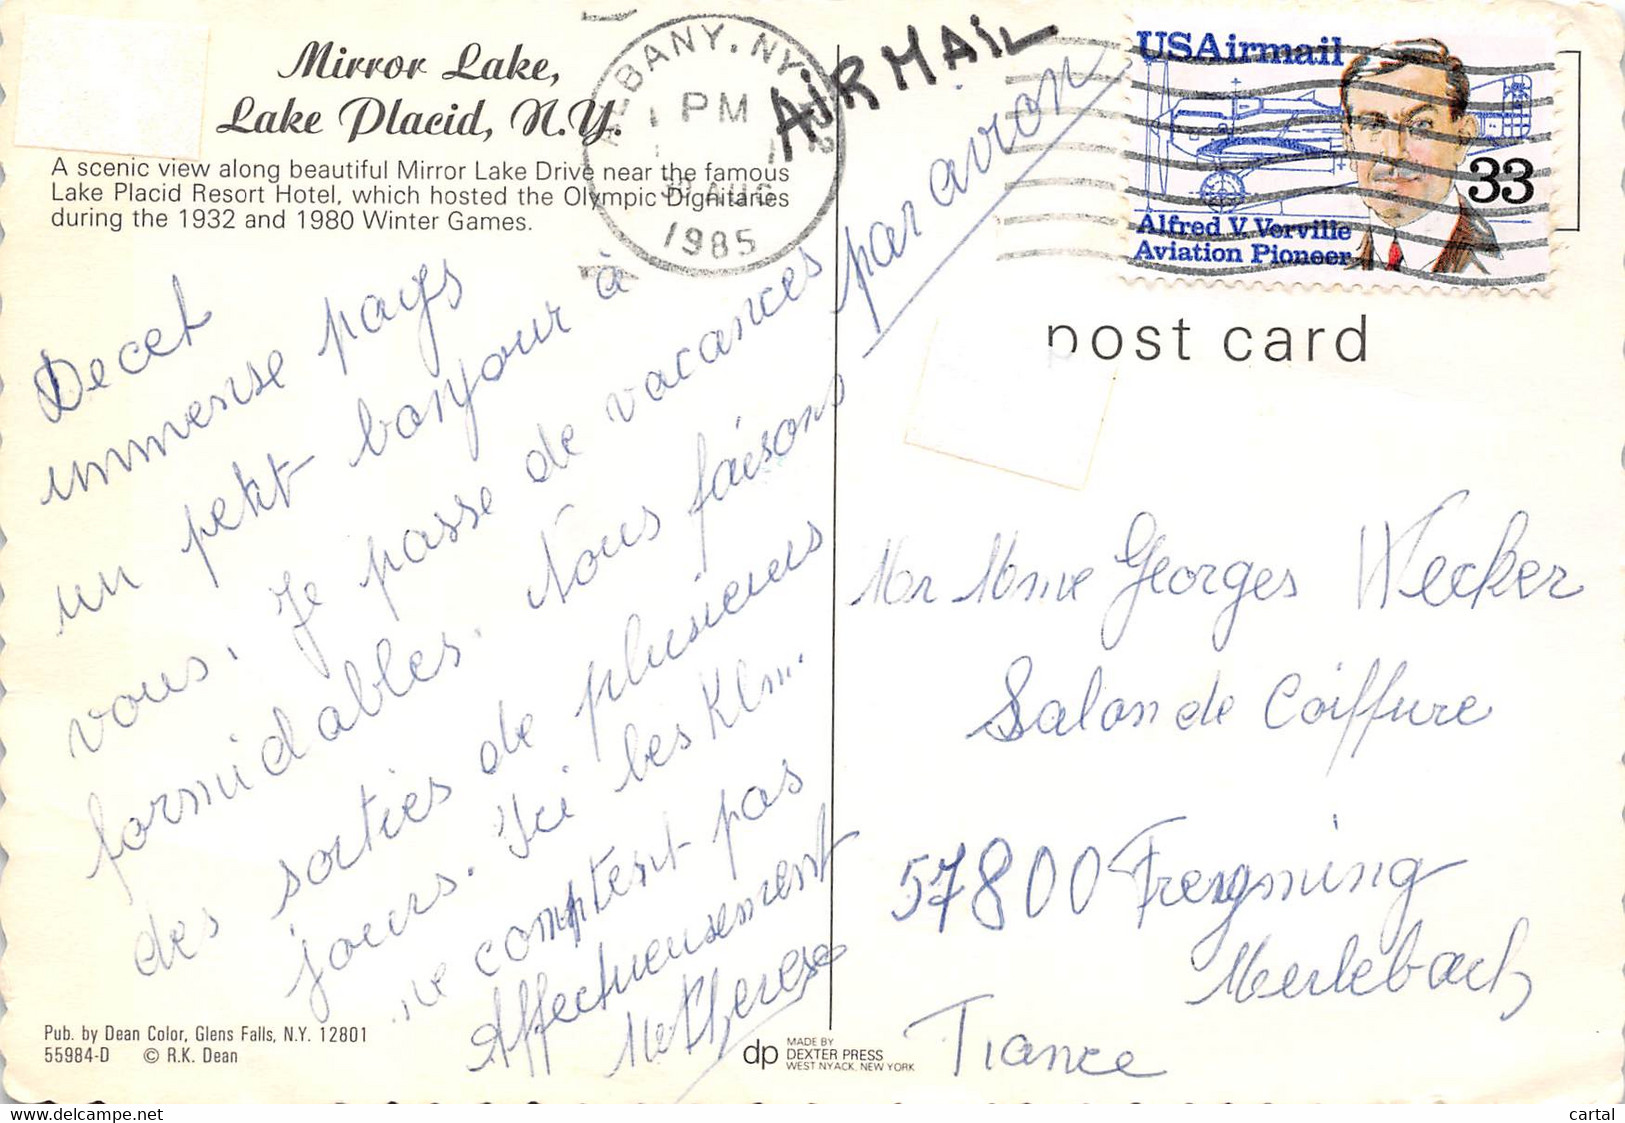 Mirror Lake,
Lake Placid, N.Y.
A scenic view along beautiful Mirror Lake Drive near the famous
Lake Placid Resort Hotel, which hosted the Olympic Dignitaries
during the 1932 and 1980 Winter Games.
ALBANY, NY
PM
AUG
1985
AIR MAIL
par avion
USAirmail
33
Alfred V. Verville
Aviation Pioneer
post card
De cet
immense pays
un petit bonjour à
vous. Je passe de vacances
formidables. Nous faisons
des sorties de plusieurs
jours. Ici les Km...
ne comptent pas
Affectueusement
Thérèse
Mr Mme Georges Wecker
Salon de Coiffure
57800 Freyming
Merlebach
France
Pub. by Dean Color, Glens Falls, N.Y. 12801
55984-D © R.K. Dean
dp
MADE BY
DEXTER PRESS
WEST NYACK, NEW YORK
https://www.delcampe.net
cartal